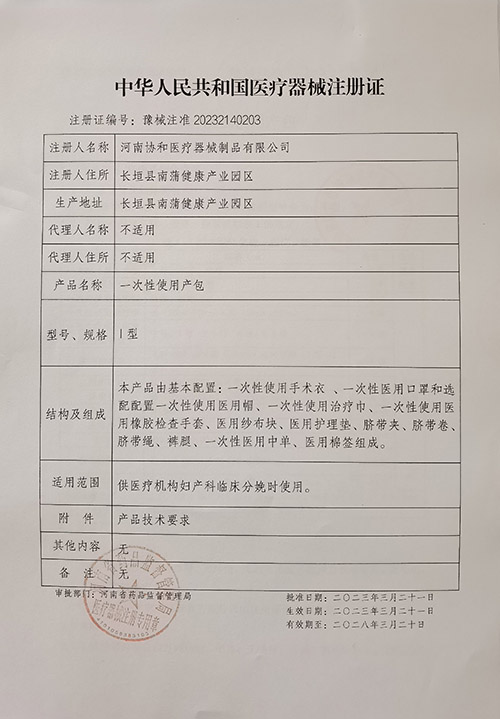 中华人民共和国医疗器械注册证
注册证编号：豫械注准 20232140203
注册人名称 河南协和医疗器械制品有限公司
注册人住所 长垣县南蒲健康产业园区
生产地址 长垣县南蒲健康产业园区
代理人名称 不适用
代理人住所 不适用
产品名称 一次性使用产包
型号、规格 I 型
本产品由基本配置：一次性使用手术衣 、一次性医用口罩和选
配配置一次性使用医用帽、一次性使用治疗巾、一次性使用医
结构及组成 用橡胶检查手套、医用纱布块、医用护理垫、脐带夹、脐带卷、
脐带绳、裤腿、一次性医用中单、医用棉签组成。
适用范围 供医疗机构妇产科临床分娩时使用。
附 件 产品技术要求
其他内容 无
备 注 无
审批部门：河南省药品监督管理局
批准日期：二〇二三年三月二十一日
生效日期：二〇二三年三月二十一日
有效期至：二〇二八年三月二十日
河南省药品监督管理局
医疗器械注册专用章